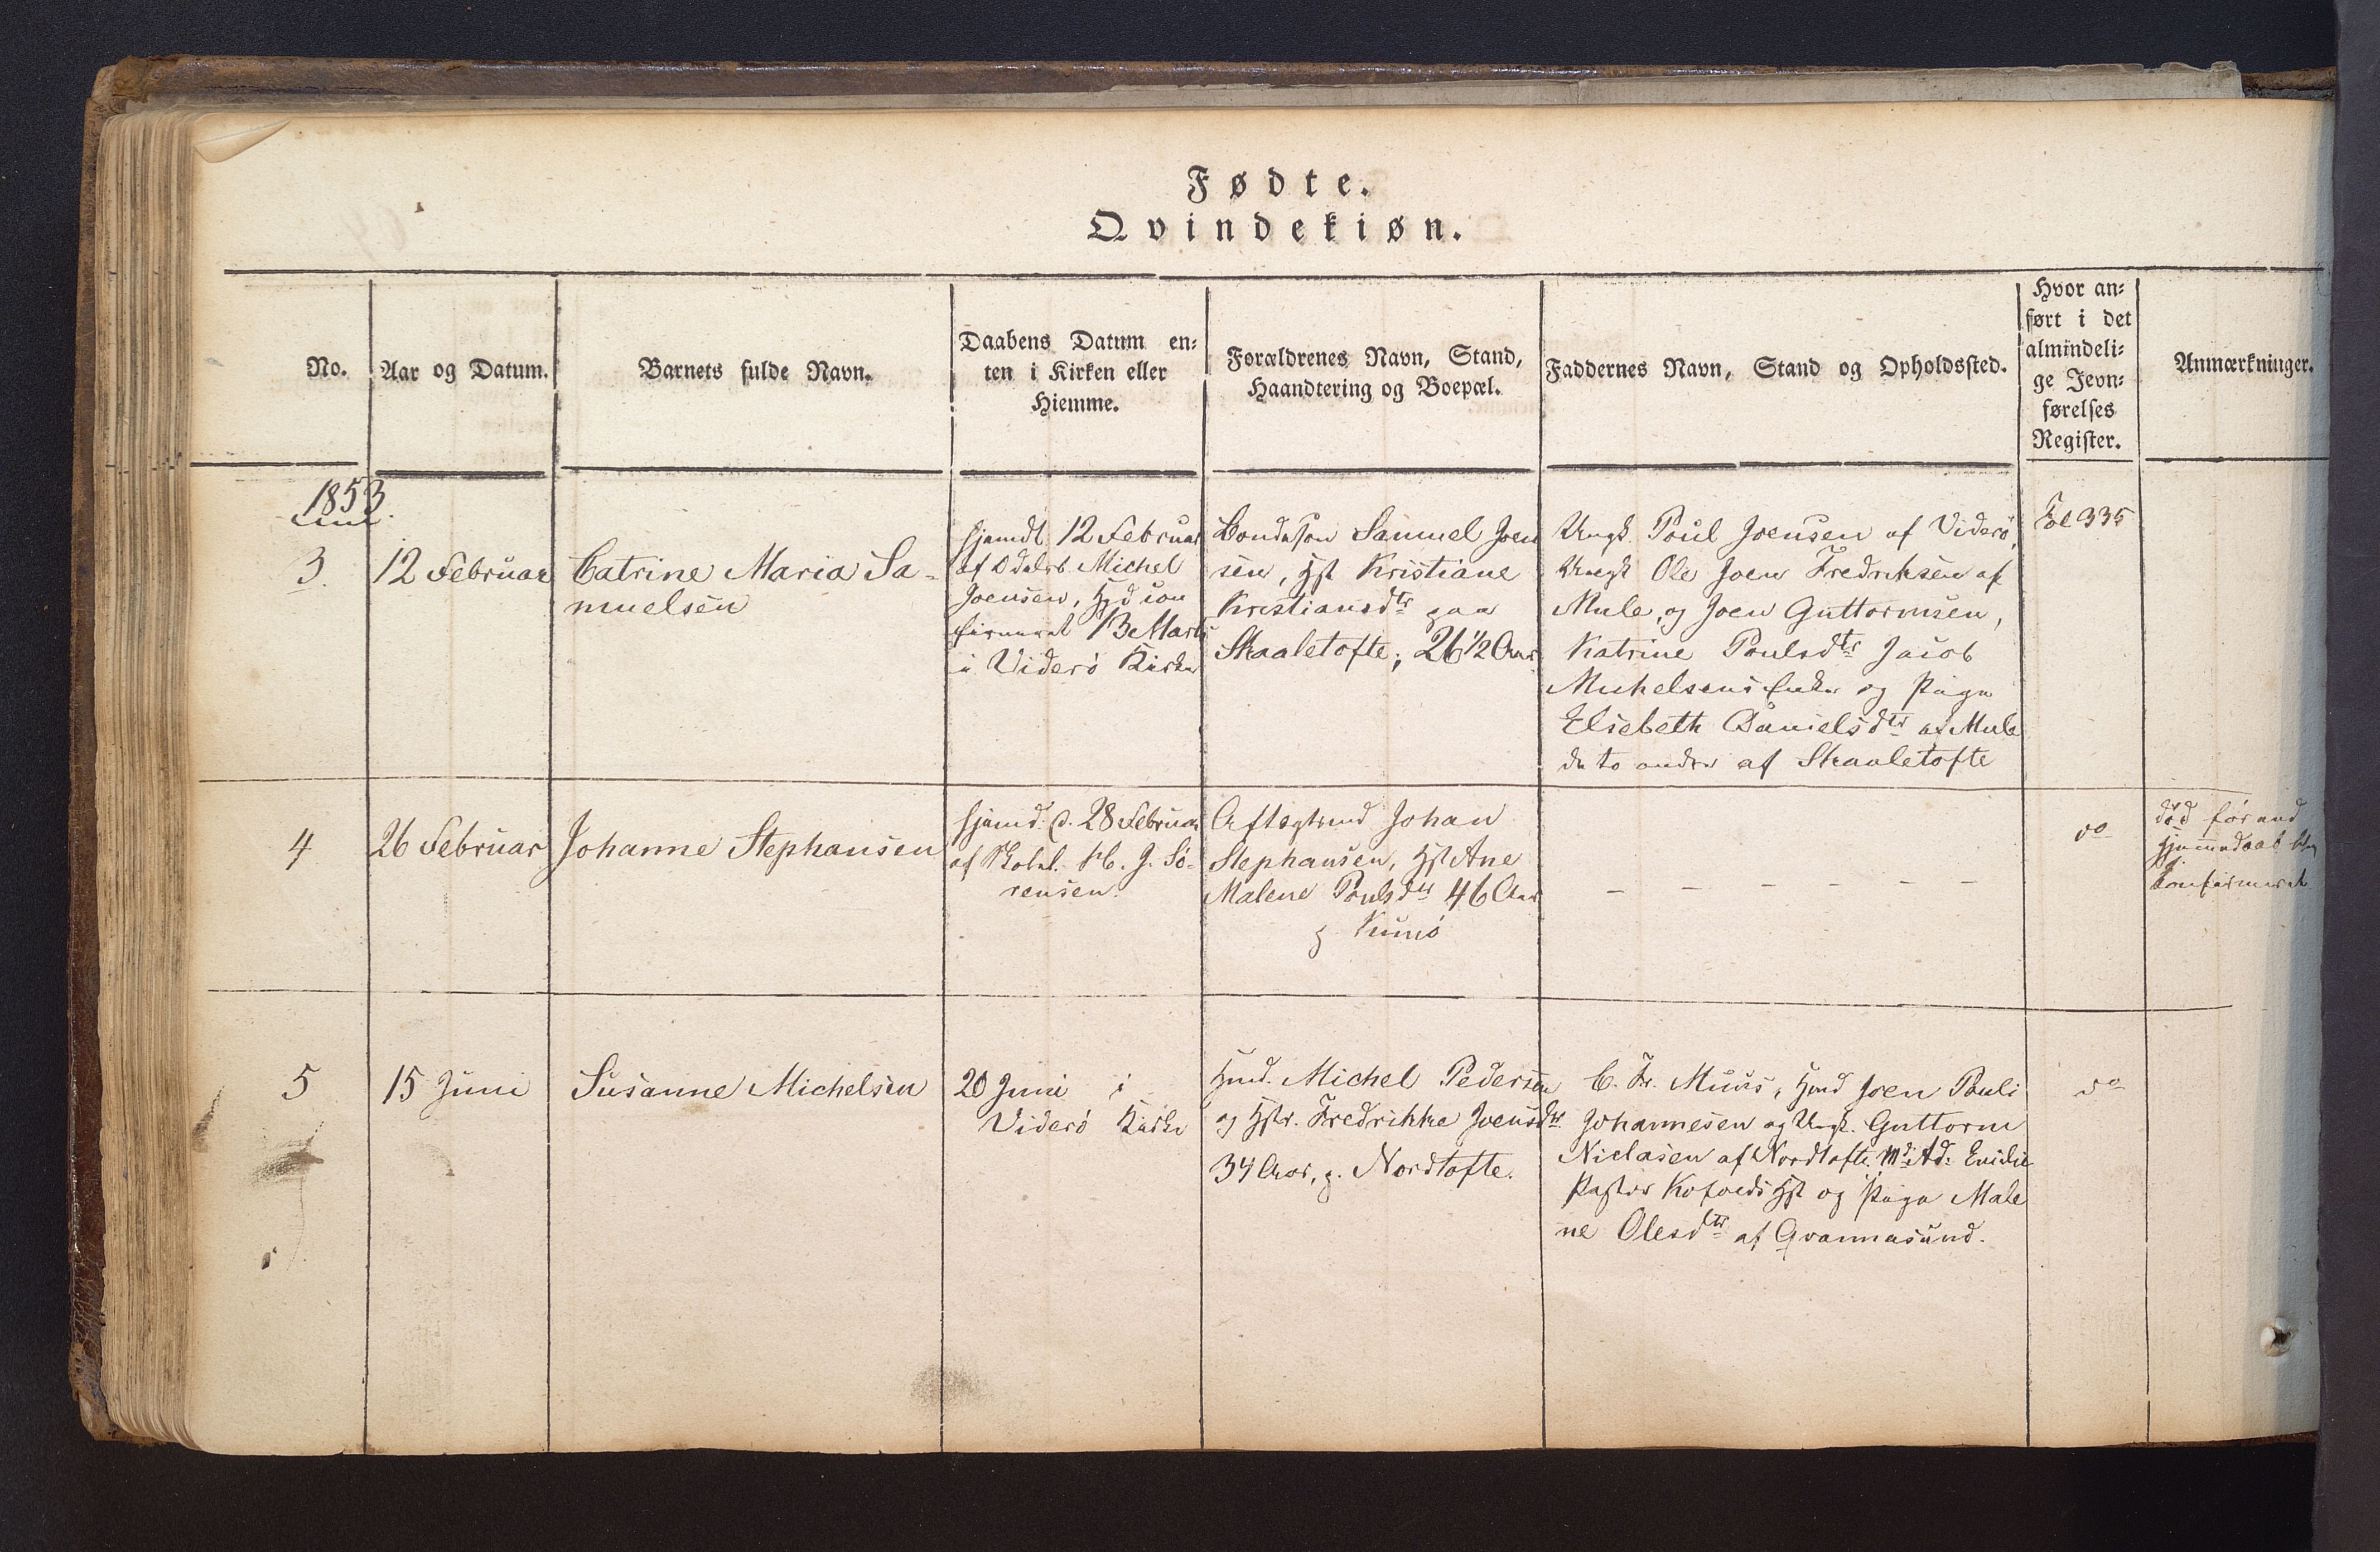 Fødte.
Qvindekiøn.
No.
Aar og Datum.
Barnets fulde Navn.
Daabens Datum en=
ten i Kirken eller
Hiemme.
Forældrenes Navn, Stand,
Haandtering og Boepæl.
Faddernes Navn, Stand og Opholdssted.
Hvor an=
ført i det
almindeli=
ge Jevn=
førelses
Register.
Anmærkninger.
1853
3.
12 Februar
Catrine Maria Sa-
muelsen
Hjemdt 12 Februar
af Odelsb. Michel
Joensen, og
13 Marts
i Viderö Kirke
Bondesøn Samuel Joen
sen, Hst Kristiane
Kristiansdtr paa
Skaaletofte, 26 1/2 Aar
Ungk. Poul Joensen af Viderö,
Ungk Ole Joen Fredriksen af
Mule, og Joen Guttormsen,
Katrine Poulsdtr Jacob
Michelsens Enke og Pige
Elsebeth Danielsdtr af Mule
de to andre af Skaaletofte
Fol 335
4
26 Februar
Johanne Stephansen
Hjemd. d. 28 Februar
af H. J. Sö-
rensen.
Aftægtsmd Johan
Stephansen, Hst Ane
Malene Poulsdtr 46 Aar
p. Kunö
– – – – – –
do
död för end
Hjemmedaab blev
konfirmeret
5
15 Juni
Susanne Michelsen
20 Juni i
Viderö Kirke
Hmd. Michel Pedersen
og Hstr. Fredrikke Joensdtr
34 Aar, p. Nordtofte.
C. Fr. Muus, Hmd Joen Pauli
Johannesen og Ungk. Guttorm
Niclasen af Nordtofte. Md. Ad. Emilie
Pastor Kofoeds Hst og Pige Male
ne Olesdtr af Qvannasund.
do